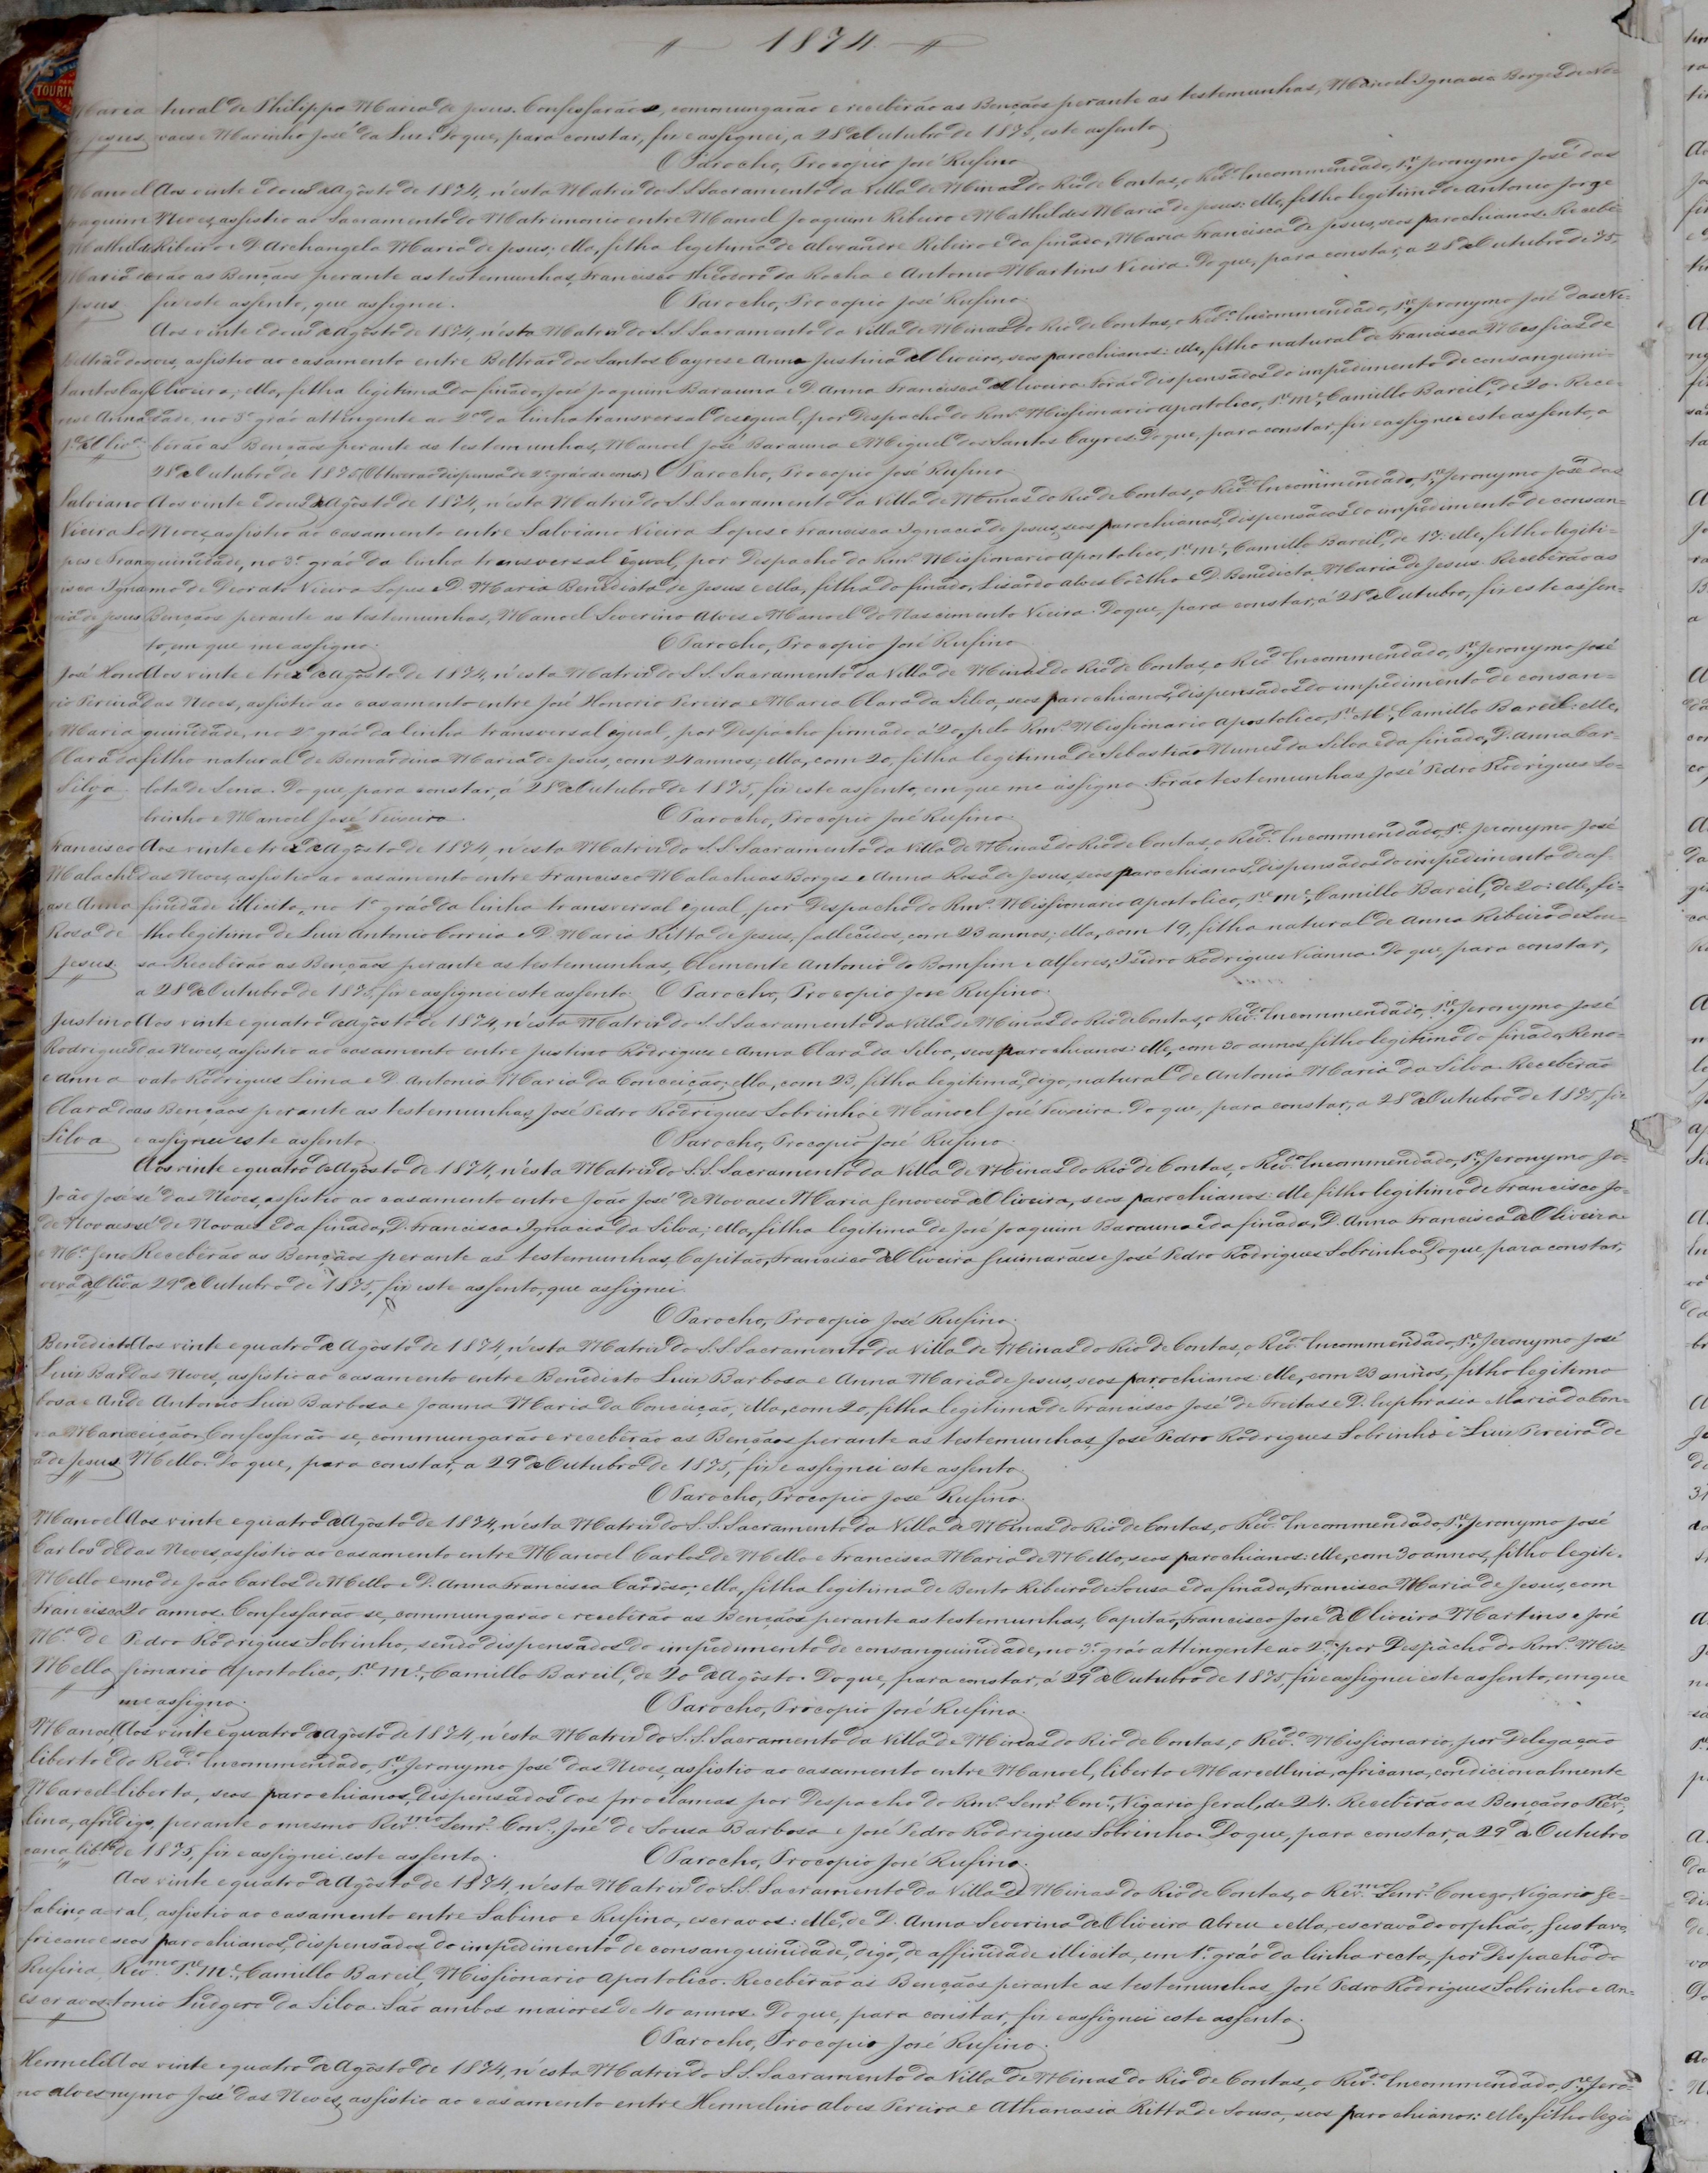 1874
Maria tural de Philippa Maria de Jesus. Confessarão, commungarão e receberão as Bençãos perante as testemunhas, Manoel Ignacio Borges de No-
Jesus vaes e Marinho José da Luz. Do que, para constar, fiz e assignei, a 28 de Outubro de 1875, este assento.
O Parocho, Procopio José Rufino
Manoel Aos vinte e dous de Agôsto de 1874, n'esta Matriz do S. S. Sacramento da Villa de Minas do Rio de Contas, o Revdo. Encommendado, Pe. Jeronymo José das
Joaquim Neves, assistio ao Sacramento do Matrimonio entre Manoel Joaquim Ribeiro e Mathildes Maria de Jesus: elle, filho legitimo de Antonio Jorge
Mathilds Ribeiro e D. Archangela Maria de Jesus; ella, filha legitima de Alexandre Ribeiro e da finada, Maria Francisca de Jesus, seos parochianos. Recebe-
Maria de rão as Bençãos perante as testemunhas, Francisco Theodoro da Rocha e Antonio Martins Vieira. Do que, para constar, a 28 de Outubro de 75,
Jesus fiz este assento, que assignei. O Parocho, Procopio José Rufino.
Aos vinte e dous de Agôsto de 1874, n'esta Matriz do S. S. Sacramento da Villa de Minas do Rio de Contas, o Revdo. Encommendado, Pe. Jeronymo José das Ne-
Beltrão dos ves, assistio ao casamento entre Beltrão dos Santos Cayres e Anna Justina de Oliveira, seos parochianos: elle, filho natural de Francisca Messias de
Santos Cay Oliveira; ella, filha legitima do finado, José Joaquim Barauna e D. Anna Francisca de Oliveira. Forão dispensados do impedimento de consanguini-
res e Anna dade, no 3º gráo attingente ao 2º da linha transversal desegual, por Despacho do Rmo. Missionario Apostolico, Pe. Me. Camillo Bareil, de 20. Rece-
Ja. de Olivª berão as Bençãos perante as testemunhas, Manoel José Barauna e Miguel dos Santos Cayres. Do que, para constar, fiz e assignei este assento, a
28 de Outubro de 1875. (Obtiverão dispensa de 2º gráo de cons.) O Parocho, Procopio José Rufino
Salviano Aos vinte e dous de Agôsto de 1874, n'esta Matriz do S. S. Sacramento da Villa de Minas do Rio de Contas, o Revdo. Encommendado, Pe. Jeronymo José das
Vieira Lo Neves, assistio ao casamento entre Salviano Vieira Lopes e Francisca Ignacia de Jesus, seos parochianos, dispensados do impedimento de consan-
pes e Fran guinidade, no 3º gráo da linha transversal egual, por Despacho do Rmo. Missionario Apostolico, Pe. Me. Camillo Bareil, de 17: elle, filho legiti-
cisca Igna mo de Deorato Vieira Lopes e D. Maria Benedista de Jesus e ella, filha do finado, Lisardo Alves Coêlho e D. Benedicta Maria de Jesus. Receberão as
cia de Jesus Bençãos perante as testemunhas, Manoel Severino Alves e Manoel do Nascimento Vieira. Do que, para constar, á 28 de Outubro, fiz este assen-
to, em que me assigno. O Parocho, Procopio José Rufino
José Hono Aos vinte e trez de Agôsto de 1874, n'esta Matriz do S. S. Sacramento da Villa de Minas do Rio de Contas, o Revdo. Encommendado, Pe. Jeronymo José
rio Pereira das Neves, assistio ao casamento entre José Honorio Pereira e Maria Clara da Silva, seos parochianos, dispensados do impedimento de consan-
e Maria guinidade, no 2º gráo da linha transversal egual, por Despacho firmado á 20, pelo Rmo. Missionario Apostolico, Pe. Me. Camillo Bareil: elle,
Clara da filho natural de Bernardina Maria de Jesus, com 24 annos; ella, com 20, filha legitima de Sebastião Nunes da Silva e da finada, D. Anna Car-
Silva lota de Sena. Do que para constar, á 28 de Outubro de 1875, fiz este assento, em que me assigno. Forão testemunhas José Pedro Rodrigues So-
brinho e Manoel José Teixeira. O Parocho, Procopio José Rufino.
Francisco Aos vinte e trez de Agôsto de 1874, n'esta Matriz do S. S. Sacramento da Villa de Minas do Rio de Contas, o Revdo. Encommendado, Pe. Jeronymo José
Malachi das Neves, assistio ao casamento entre Francisco Malachias Borges e Anna Rosa de Jesus, seos parochianos, dispensados do impedimento de af-
as e Anna finidade illicita, no 1º gráo da linha transversal egual, por Despacho do Rmo. Missionario Apostolico, Pe. Me. Camillo Bareil, de 20: elle, fi-
Rosa de lho legitimo de Luiz Antonio Correia e D. Maria Ritta de Jesus, fallecidos, com 23 annos; ella, com 19, filha natural de Anna Ribeiro de Sou-
Jesus sa. Receberão as Bençãos perante as testemunhas, Clemente Antonio do Bomfim e Alferes, Isidro Rodrigues Vianna. Do que, para constar,
a 28 de Outubro de 1875, fiz e assignei este assento. O Parocho, Procopio José Rufino.
Justino Aos vinte e quatro de Agôsto de 1874, n'esta Matriz do S. S. Sacramento da Villa de Minas do Rio de Contas, o Revdo. Encommendado, Pe. Jeronymo José
Rodrigues das Neves, assistio ao casamento entre Justino Rodrigues e Anna Clara da Silva, seos parochianos: elle, com 30 annos, filho legitimo do finado, Reno-
e Anna vato Rodrigues Lima e D. Antonia Maria da Conceição; ella, com 23, filha legitima, digo, natural de Antonia Maria da Silva. Receberão
Clara da as Bençãos perante as testemunhas, José Pedro Rodrigues Sobrinho e Manoel José Teixeira. Do que, para constar, a 28 de Outubro de 1875, fiz
Silva e assignei este assento. O Parocho, Procopio José Rufino.
Aos vinte e quatro de Agôsto de 1874, n'esta Matriz do S. S. Sacramento da Villa de Minas do Rio de Contas, o Revdo. Encommendado, Pe. Jeronymo Jo-
João José sé das Neves, assistio ao casamento entre João José de Novaes e Maria Genoveva de Oliveira, seos parochianos: elle filho legitimo de Francisco Jo-
de Novaes sé de Novaes e da finada, D. Francisca Ignacia da Silva; ella, filha legitima de José Joaquim Barauna e da finada, D. Anna Francisca de Oliveira.
e Mª. Geno Receberão as Bençãos perante as testemunhas, Capitão, Francisco de Oliveira Guimarães e José Pedro Rodrigues Sobrinho. Do que, para constar,
veva de Olivª a 29 de Outubro de 1875, fiz este assento, que assignei.
O Parocho, Procopio José Rufino.
Benedicto Aos vinte e quatro de Agôsto de 1874, n'esta Matriz do S. S. Sacramento da Villa de Minas do Rio de Contas, o Revdo. Encommendado, Pe. Jeronymo José
Luiz Bar das Neves, assistio ao casamento entre Benedicto Luiz Barbosa e Anna Maria de Jesus, seos parochianos: elle, com 23 annos, filho legitimo
bosa e An de Antonio Luiz Barbosa e Joanna Maria da Conceição; ella, com 20, filha legitima de Francisco José de Freitas e D. Euphrasia Maria da Con-
na Mari ceição. Confessarão-se, commungarão e receberão as Bençãos perante as testemunhas, José Pedro Rodrigues Sobrinho e Luiz Pereira de
a de Jesus Mello. Do que, para constar, a 29 de Outubro de 1875, fiz e assignei este assento.
O Parocho, Procopio José Rufino.
Manoel Aos vinte e quatro de Agôsto de 1874, n'esta Matriz do S. S. Sacramento da Villa de Minas do Rio de Contas, o Revdo. Encommendado, Pe. Jeronymo José
Carlos de das Neves, assistio ao casamento entre Manoel Carlos de Mello e Francisca Maria de Mello, seos parochianos: elle, com 30 annos, filho legiti-
Mello e mo de João Carlos de Mello e D. Anna Francisca Cardoso; ella, filha legitima de Bento Ribeiro de Sousa e da finada, Francisca Maria de Jesus, com
Francisca 20 annos. Confessarão-se, commungarão e receberão as Bençãos perante as testemunhas, Capitão, Francisco José de Oliveira Martins e José
Mª. de Pedro Rodrigues Sobrinho, sendo dispensados do impedimento de consanguinidade, no 3º gráo attingente ao 2º, por Despacho do Rmo. Mis-
Mello sionario Apostolico, Pe. Me. Camillo Bareil, de 20 de Agôsto. Do que, para constar, á 29 de Outubro de 1875, fiz e assignei este assento, em que
me assigno. O Parocho, Procopio José Rufino.
Manoel, Aos vinte e quatro de Agôsto de 1874, n'esta Matriz do S. S. Sacramento da Villa de Minas do Rio de Contas, o Revdo. Missionario, por Delegação
liberto e do Revdo. Encommendado, Pe. Jeronymo José das Neves, assistio ao casamento entre Manoel, liberto e Marcellina, africana, condicionalmente
Marcel- liberta, seos parochianos, dispensados dos proclamas por Despacho do Rmo. Senr. Cmo. Vigario Geral, de 24. Receberão as Bençãos o Revdo.,
lina, afri digo, perante o mesmo Revmo. Senr. Con. José de Sousa Barbosa e José Pedro Rodrigues Sobrinho. Do que, para constar, a 29 de Outubro
cana, libta de 1875, fiz e assignei este assento. O Parocho, Procopio José Rufino.
Aos vinte e quatro de Agôsto de 1874, n'esta Matriz do S. S. Sacramento da Villa de Minas do Rio de Contas, o Revmo. Senr. Conego, Vigario Ge-
Sabino, a ral, assistio ao casamento entre Sabino e Rufina, escravos: elle, de D. Anna Severina de Oliveira Abreu e ella, escrava do orphão, Gustavo,
fricano e seos parochianos, dispensados do impedimento de consanguinidade, digo, de affinidade illicita, em 1º gráo da linha recta, por Despacho do
Rufina Revmo. Pe. Me. Camillo Bareil, Missionario Apostolico. Receberão as Bençãos perante as testemunhas, José Pedro Rodrigues Sobrinho e An-
escravos tonio Ludgero da Silva. São ambos maiores de 40 annos. Do que, para constar, fiz e assignei este assento.
O Parocho, Procopio José Rufino.
Hermeli Aos vinte e quatro de Agôsto de 1874, n'esta Matriz do S. S. Sacramento da Villa de Minas do Rio de Contas, o Revdo. Encommendado, Pe. Jero-
no Alves nymo José das Neves, assistio ao casamento entre Hermelino Alves Pereira e Athanasia Ritta de Sousa, seos parochianos: elle, filho legi-